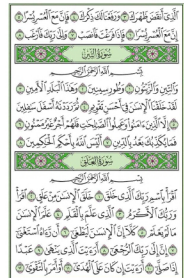 ٱلَّذِىٓ أَنقَضَ ظَهْرَكَ ٣ وَرَفَعْنَا لَكَ ذِكْرَكَ ٤ فَإِنَّ مَعَ ٱلْعُسْرِ يُسْرًا ٥
إِنَّ مَعَ ٱلْعُسْرِ يُسْرًا ٦ فَإِذَا فَرَغْتَ فَٱنصَبْ ٧ وَإِلَىٰ رَبِّكَ فَٱرْغَب ٨
سُورَةُ التِّينِ
بِسْمِ ٱللَّهِ ٱلرَّحْمَٰنِ ٱلرَّحِيمِ
وَٱلتِّينِ وَٱلزَّيْتُونِ ١ وَطُورِ سِينِينَ ٢ وَهَٰذَا ٱلْبَلَدِ ٱلْأَمِينِ ٣
لَقَدْ خَلَقْنَا ٱلْإِنسَٰنَ فِىٓ أَحْسَنِ تَقْوِيمٍ ٤ ثُمَّ رَدَدْنَٰهُ أَسْفَلَ سَٰفِلِينَ ٥
إِلَّا ٱلَّذِينَ ءَامَنُوا۟ وَعَمِلُوا۟ ٱلصَّٰلِحَٰتِ فَلَهُمْ أَجْرٌ غَيْرُ مَمْنُونٍ ٦
فَمَا يُكَذِّبُكَ بَعْدُ بِٱلدِّينِ ٧ أَلَيْسَ ٱللَّهُ بِأَحْكَمِ ٱلْحَٰكِمِينَ ٨
سُورَةُ العَلَقِ
بِسْمِ ٱللَّهِ ٱلرَّحْمَٰنِ ٱلرَّحِيمِ
ٱقْرَأْ بِٱسْمِ رَبِّكَ ٱلَّذِى خَلَقَ ١ خَلَقَ ٱلْإِنسَٰنَ مِنْ عَلَقٍ ٢ ٱقْرَأْ
وَرَبُّكَ ٱلْأَكْرَمُ ٣ ٱلَّذِى عَلَّمَ بِٱلْقَلَمِ ٤ عَلَّمَ ٱلْإِنسَٰنَ
مَا لَمْ يَعْلَمْ ٥ كَلَّآ إِنَّ ٱلْإِنسَٰنَ لَيَطْغَىٰٓ ٦ أَن رَّءَاهُ ٱسْتَغْنَىٰٓ
٧ إِنَّ إِلَىٰ رَبِّكَ ٱلرُّجْعَىٰٓ ٨ أَرَءَيْتَ ٱلَّذِى يَنْهَىٰ ٩ عَبْدًا
إِذَا صَلَّىٰٓ ١٠ أَرَءَيْتَ إِن كَانَ عَلَى ٱلْهُدَىٰٓ ١١